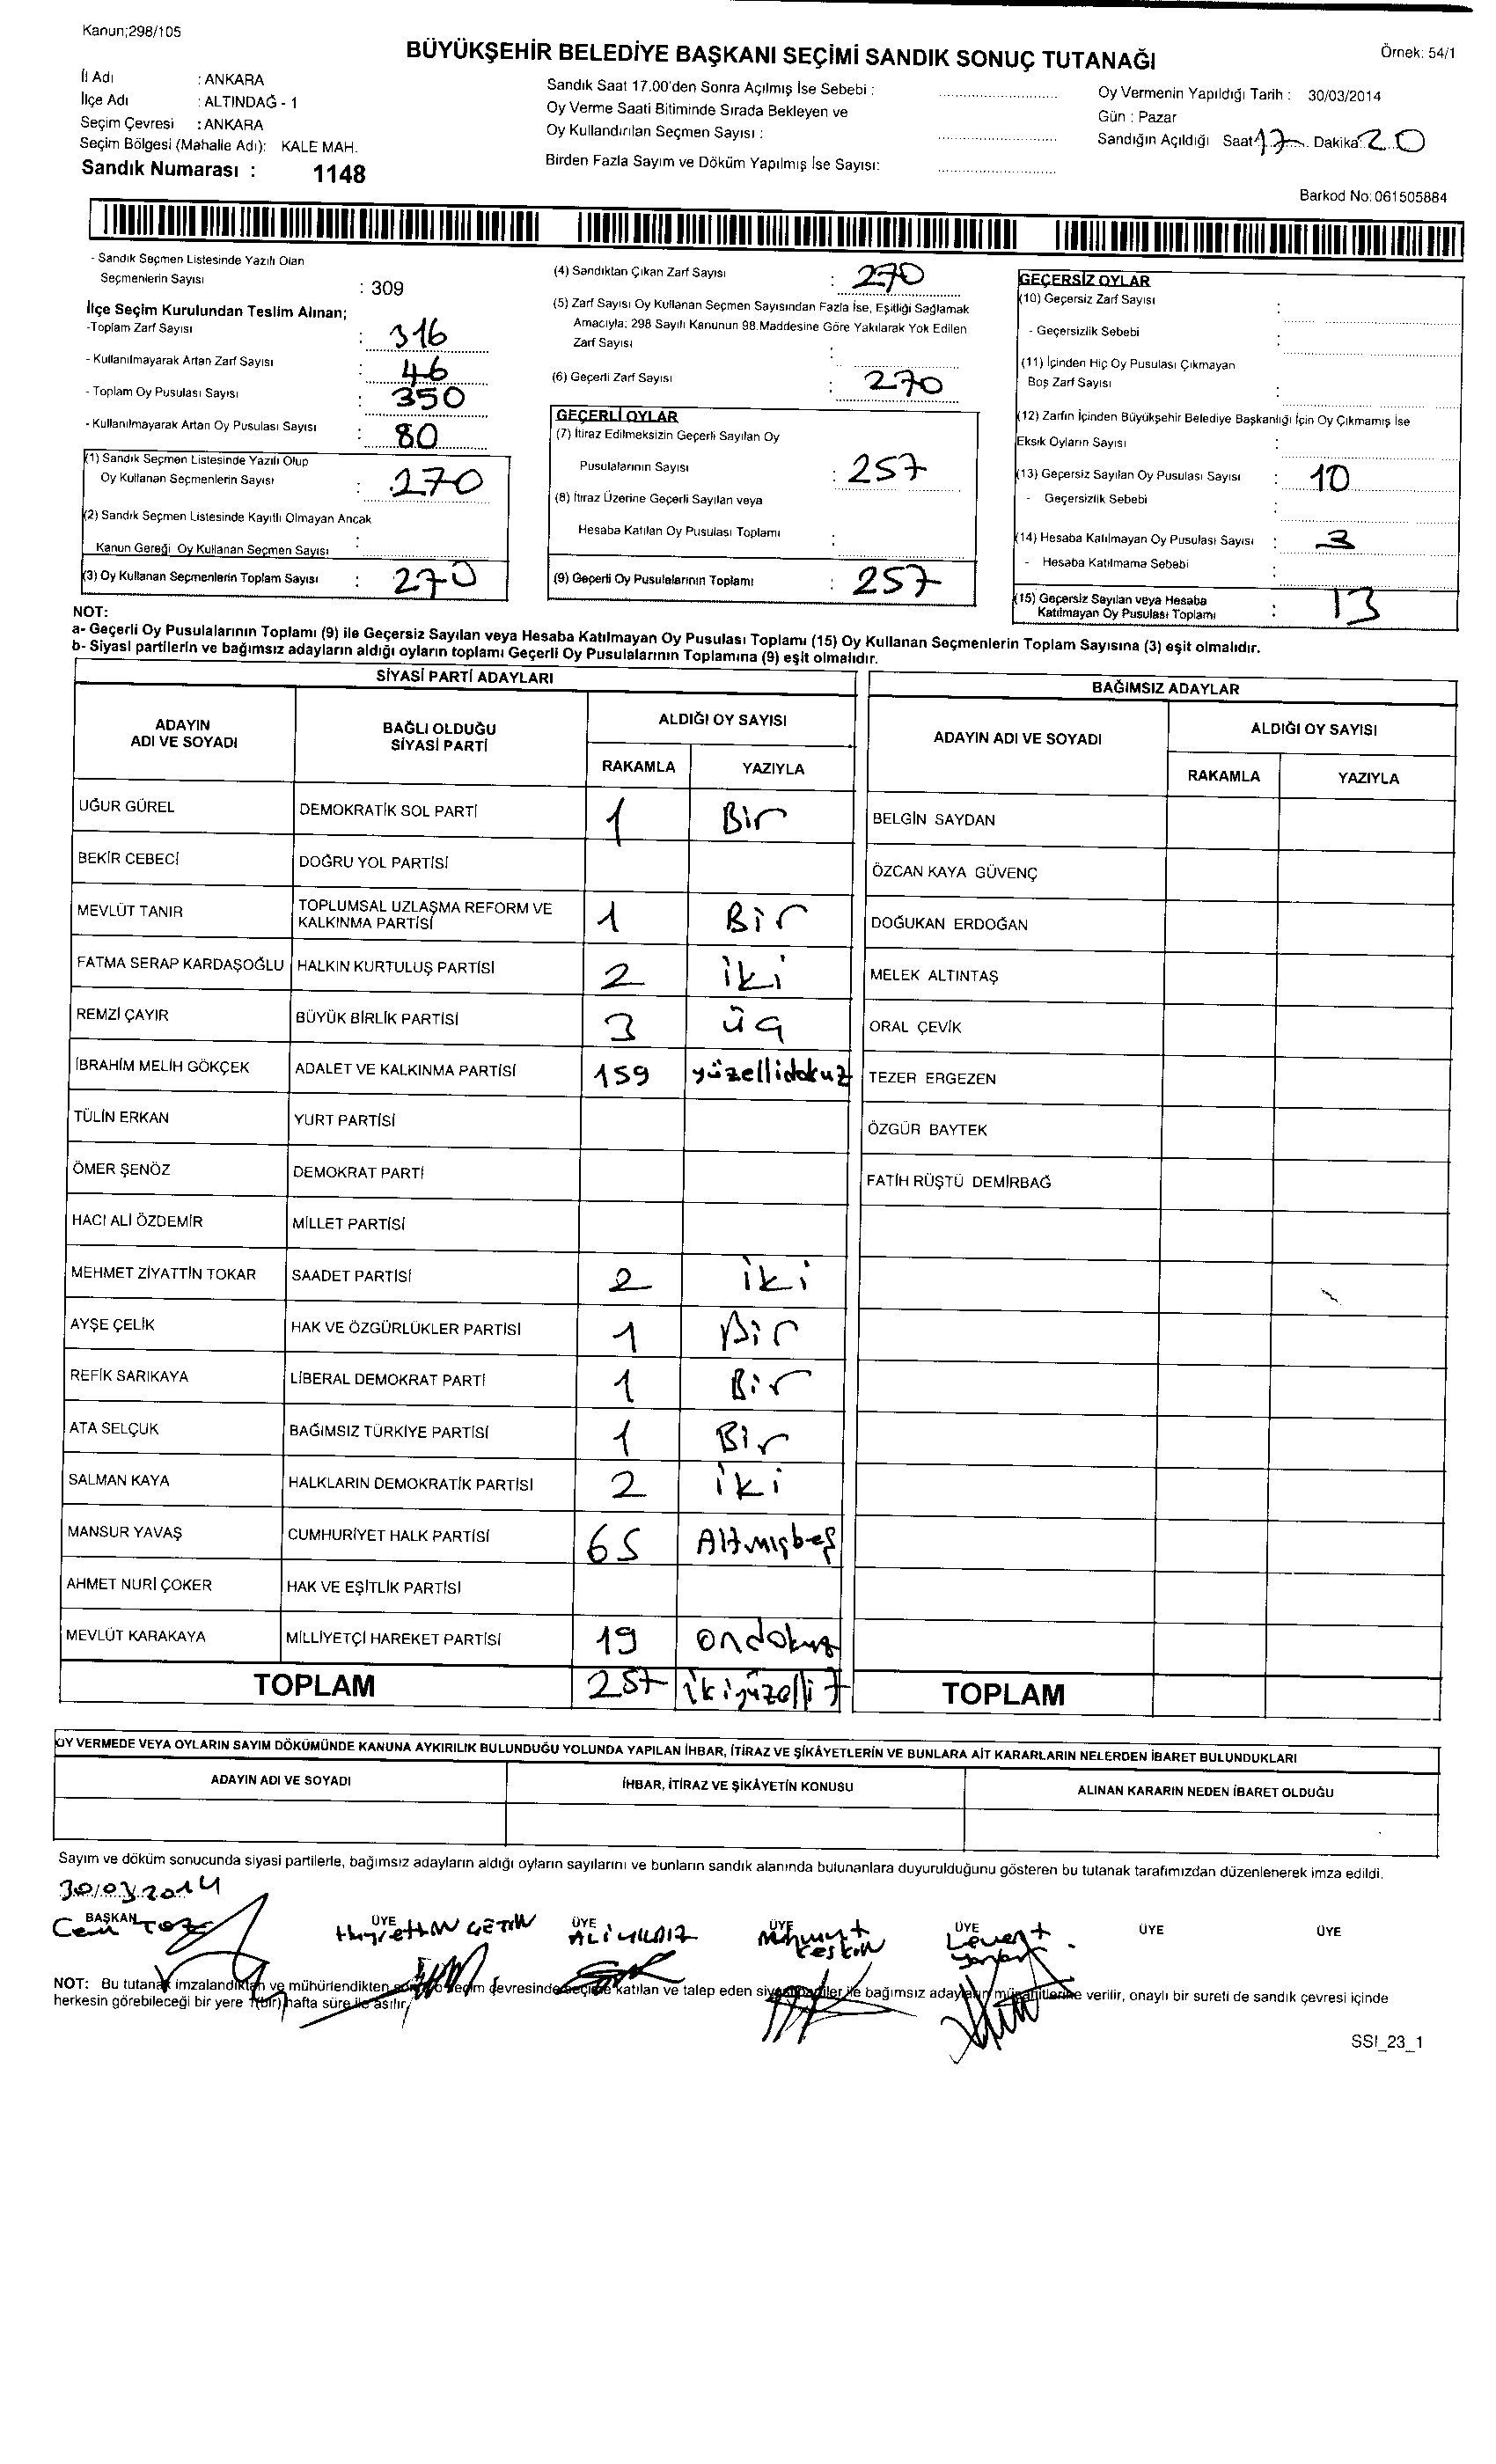 Kanun;298/105
BÜYÜKŞEHİR BELEDİYE BAŞKANI SEÇİMİ SANDIK SONUÇ TUTANAĞI
Örnek: 54/1
İl Adı : ANKARA
İlçe Adı : ALTINDAĞ - 1
Seçim Çevresi : ANKARA
Seçim Bölgesi (Mahalle Adı): KALE MAH.
Sandık Numarası : 1148
Sandık Saat 17.00'den Sonra Açılmış İse Sebebi :
Oy Verme Saati Bitiminde Sırada Bekleyen ve
Oy Kullandırılan Seçmen Sayısı :
Birden Fazla Sayım ve Döküm Yapılmış İse Sayısı:
Oy Vermenin Yapıldığı Tarih : 30/03/2014
Gün : Pazar
Sandığın Açıldığı Saat 17 Dakika 20
Barkod No: 061505884
- Sandık Seçmen Listesinde Yazılı Olan
Seçmenlerin Sayısı : 309
İlçe Seçim Kurulundan Teslim Alınan;
-Toplam Zarf Sayısı : 316
- Kullanılmayarak Artan Zarf Sayısı : 46
- Toplam Oy Pusulası Sayısı : 350
- Kullanılmayarak Artan Oy Pusulası Sayısı : 80
(1) Sandık Seçmen Listesinde Yazılı Olup
Oy Kullanan Seçmenlerin Sayısı : 270
(2) Sandık Seçmen Listesinde Kayıtlı Olmayan Ancak
Kanun Gereği Oy Kullanan Seçmen Sayısı :
(3) Oy Kullanan Seçmenlerin Toplam Sayısı : 270
(4) Sandıktan Çıkan Zarf Sayısı : 270
(5) Zarf Sayısı Oy Kullanan Seçmen Sayısından Fazla İse, Eşitliği Sağlamak
Amacıyla; 298 Sayılı Kanunun 98.Maddesine Göre Yakılarak Yok Edilen
Zarf Sayısı :
(6) Geçerli Zarf Sayısı : 270
GEÇERLİ OYLAR
(7) İtiraz Edilmeksizin Geçerli Sayılan Oy
Pusulalarının Sayısı : 257
(8) İtiraz Üzerine Geçerli Sayılan veya
Hesaba Katılan Oy Pusulası Toplamı :
(9) Geçerli Oy Pusulalarının Toplamı : 257
GEÇERSİZ OYLAR
(10) Geçersiz Zarf Sayısı :
- Geçersizlik Sebebi :
(11) İçinden Hiç Oy Pusulası Çıkmayan
Boş Zarf Sayısı :
(12) Zarfın İçinden Büyükşehir Belediye Başkanlığı İçin Oy Çıkmamış İse
Eksik Oyların Sayısı :
(13) Geçersiz Sayılan Oy Pusulası Sayısı : 10
- Geçersizlik Sebebi :
(14) Hesaba Katılmayan Oy Pusulası Sayısı : 3
- Hesaba Katılmama Sebebi :
(15) Geçersiz Sayılan veya Hesaba
Katılmayan Oy Pusulası Toplamı : 13
NOT:
a- Geçerli Oy Pusulalarının Toplamı (9) ile Geçersiz Sayılan veya Hesaba Katılmayan Oy Pusulası Toplamı (15) Oy Kullanan Seçmenlerin Toplam Sayısına (3) eşit olmalıdır.
b- Siyasi partilerin ve bağımsız adayların aldığı oyların toplamı Geçerli Oy Pusulalarının Toplamına (9) eşit olmalıdır.
SİYASİ PARTİ ADAYLARI
ADAYIN ADI VE SOYADI BAĞLI OLDUĞU SİYASİ PARTİ ALDIĞI OY SAYISI
RAKAMLA YAZIYLA
UĞUR GÜREL DEMOKRATİK SOL PARTİ 1 Bir
BEKİR CEBECİ DOĞRU YOL PARTİSİ
MEVLÜT TANIR TOPLUMSAL UZLAŞMA REFORM VE KALKINMA PARTİSİ 1 Bir
FATMA SERAP KARDAŞOĞLU HALKIN KURTULUŞ PARTİSİ 2 iki
REMZİ ÇAYIR BÜYÜK BİRLİK PARTİSİ 3 üç
İBRAHİM MELİH GÖKÇEK ADALET VE KALKINMA PARTİSİ 159 yüzellidokuz
TÜLİN ERKAN YURT PARTİSİ
ÖMER ŞENÖZ DEMOKRAT PARTİ
HACI ALİ ÖZDEMİR MİLLET PARTİSİ
MEHMET ZİYATTİN TOKAR SAADET PARTİSİ 2 iki
AYŞE ÇELİK HAK VE ÖZGÜRLÜKLER PARTİSİ 1 Bir
REFİK SARIKAYA LİBERAL DEMOKRAT PARTİ 1 Bir
ATA SELÇUK BAĞIMSIZ TÜRKİYE PARTİSİ 1 Bir
SALMAN KAYA HALKLARIN DEMOKRATİK PARTİSİ 2 iki
MANSUR YAVAŞ CUMHURİYET HALK PARTİSİ 65 Altmışbeş
AHMET NURİ ÇOKER HAK VE EŞİTLİK PARTİSİ
MEVLÜT KARAKAYA MİLLİYETÇİ HAREKET PARTİSİ 19 ondokuz
TOPLAM 257 ikiyüzelli 7
BAĞIMSIZ ADAYLAR
ADAYIN ADI VE SOYADI ALDIĞI OY SAYISI
RAKAMLA YAZIYLA
BELGİN SAYDAN
ÖZCAN KAYA GÜVENÇ
DOĞUKAN ERDOĞAN
MELEK ALTINTAŞ
ORAL ÇEVİK
TEZER ERGEZEN
ÖZGÜR BAYTEK
FATİH RÜŞTÜ DEMİRBAĞ
TOPLAM
OY VERMEDE VEYA OYLARIN SAYIM DÖKÜMÜNDE KANUNA AYKIRILIK BULUNDUĞU YOLUNDA YAPILAN İHBAR, İTİRAZ VE ŞİKÂYETLERİN VE BUNLARA AİT KARARLARIN NELERDEN İBARET BULUNDUKLARI
ADAYIN ADI VE SOYADI İHBAR, İTİRAZ VE ŞİKÂYETİN KONUSU ALINAN KARARIN NEDEN İBARET OLDUĞU
Sayım ve döküm sonucunda siyasi partilerle, bağımsız adayların aldığı oyların sayılarını ve bunların sandık alanında bulunanlara duyurulduğunu gösteren bu tutanak tarafımızdan düzenlenerek imza edildi.
30/03/2014
BAŞKAN ÜYE ÜYE ÜYE ÜYE ÜYE ÜYE
Cem Hayrettin ÇETİN ALİ YILDIZ Mahmut Keskin Levent
NOT: Bu tutanak imzalandıktan ve mühürlendikten sonra o seçim çevresinde seçime katılan ve talep eden siyasi partiler ile bağımsız adayların müşahitlerine verilir, onaylı bir sureti de sandık çevresi içinde
herkesin görebileceği bir yere 1(bir) hafta süre ile asılır.
SSI_23_1